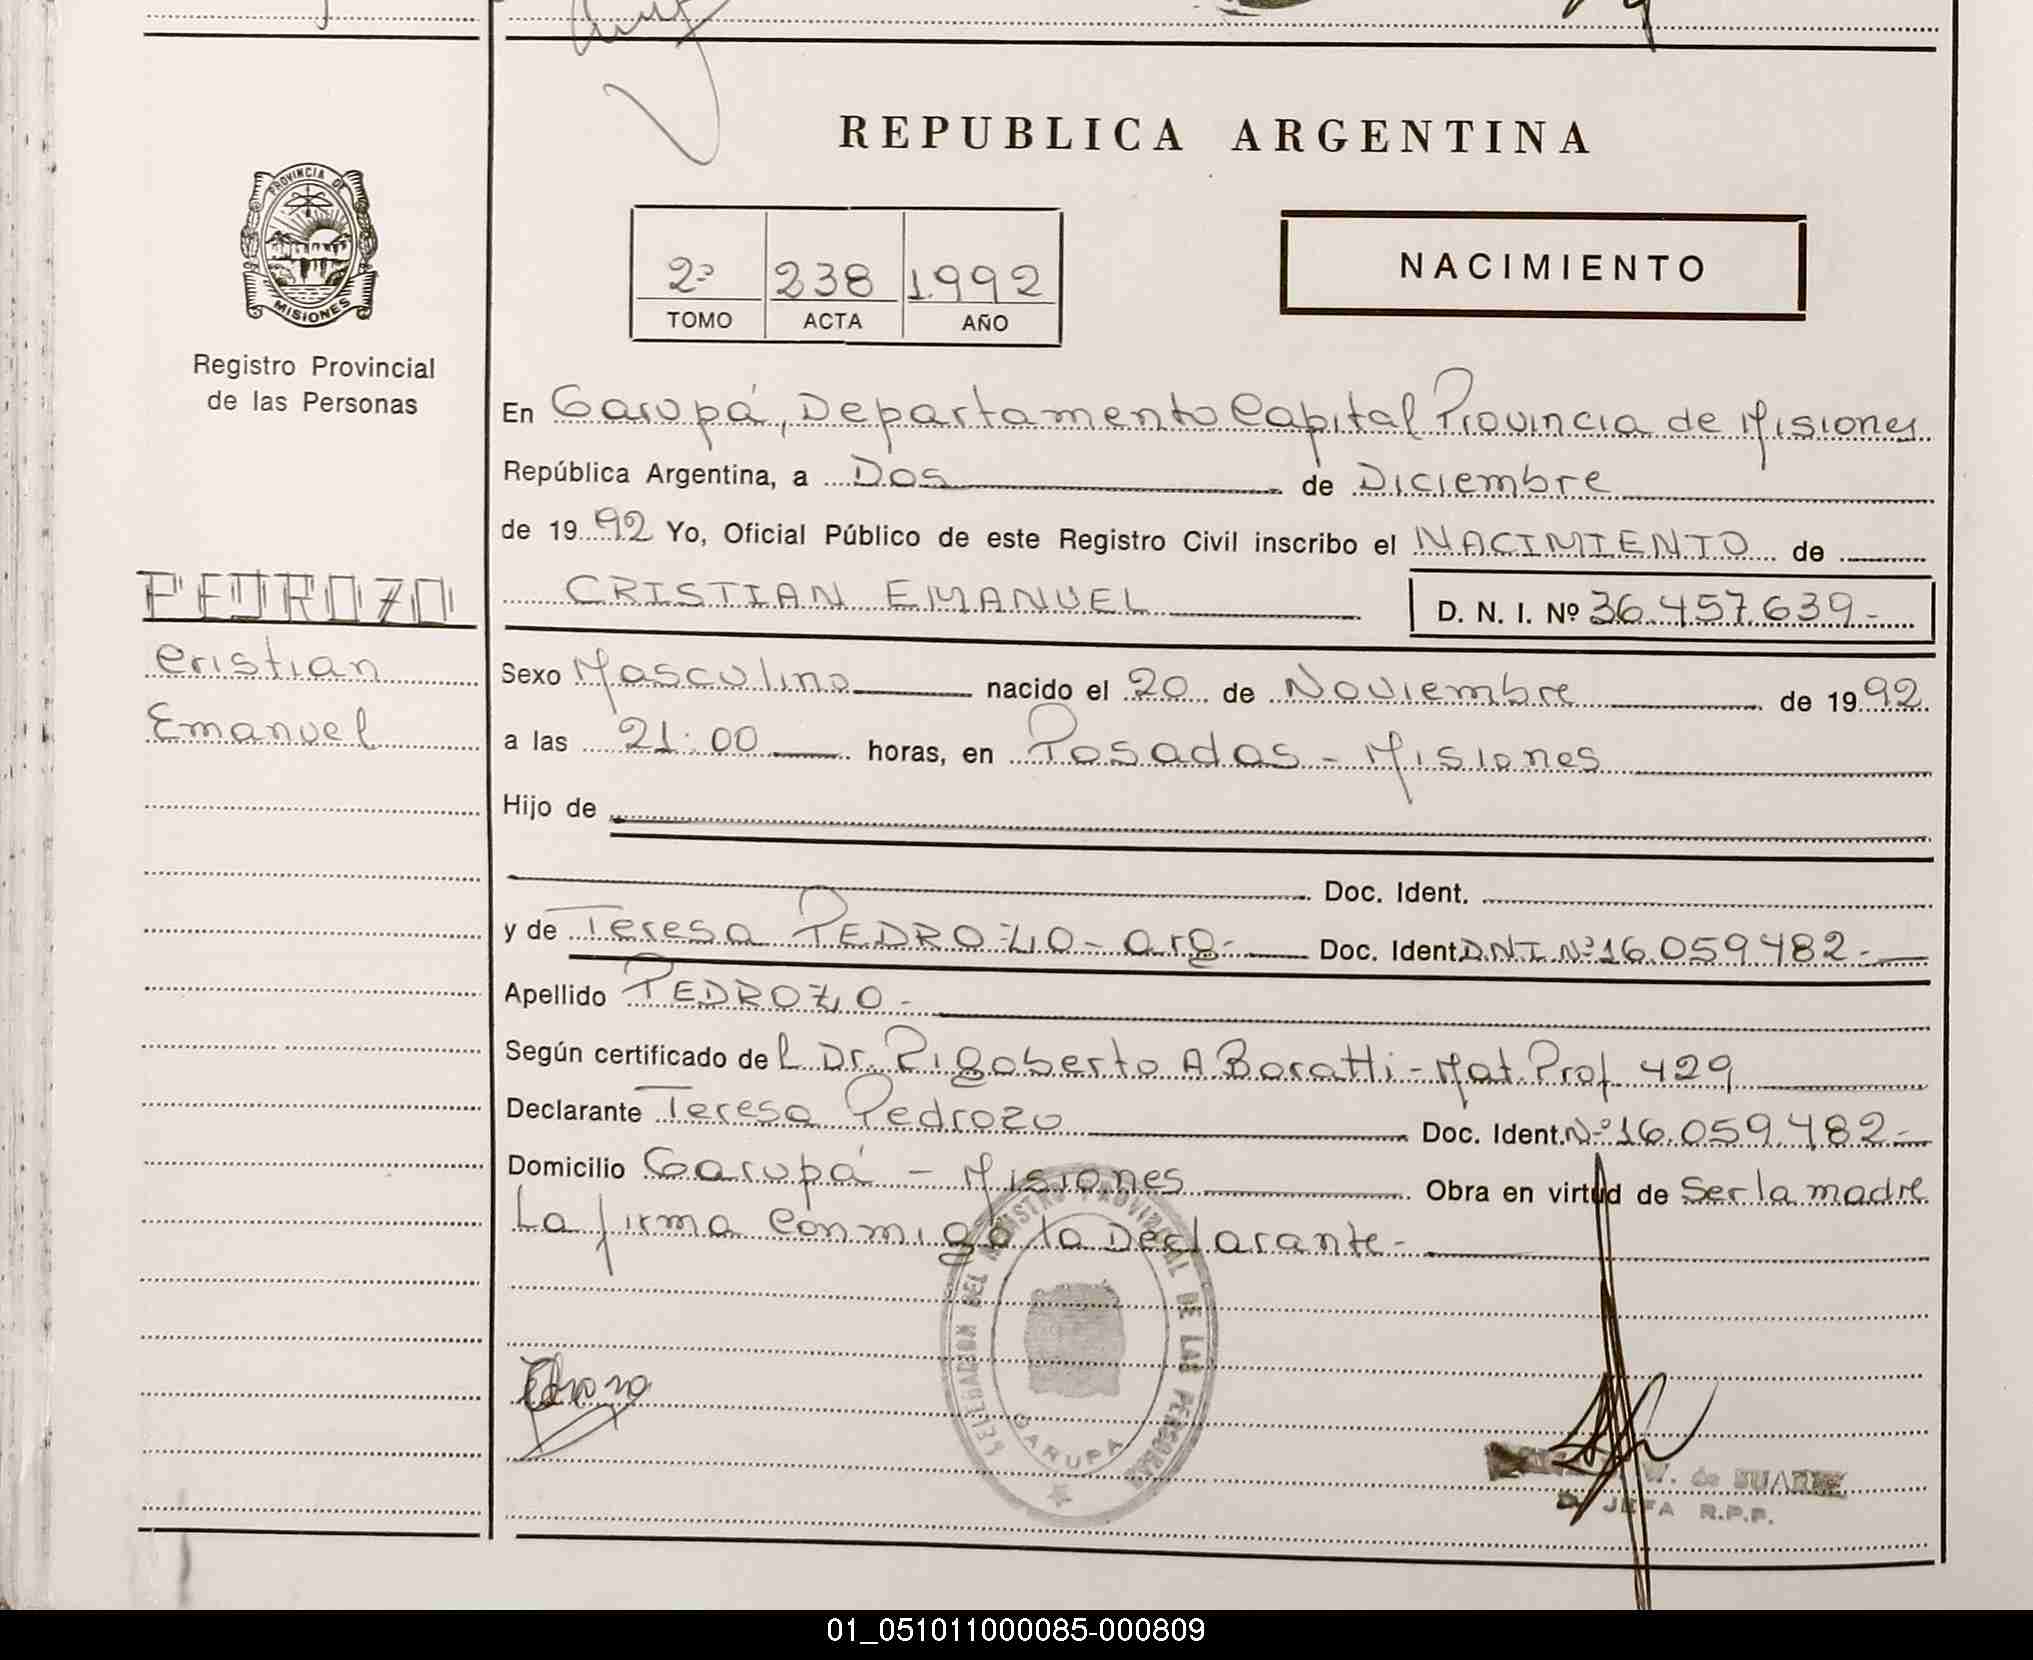 REPUBLICA ARGENTINA
PROVINCIA DE
MISIONES
Registro Provincial
de las Personas
2º 238 1992
TOMO ACTA AÑO
NACIMIENTO
En Garupá, Departamento Capital Provincia de Misiones
República Argentina, a Dos de Diciembre
de 1992 Yo, Oficial Público de este Registro Civil inscribo el NACIMIENTO de
PEDROZO
CRISTIAN EMANUEL D. N. I. Nº 36.457.639.-
Cristian
Emanuel
Sexo Masculino nacido el 20 de Noviembre de 1992
a las 21:00 horas, en Posadas - Misiones
Hijo de
Doc. Ident.
y de Teresa PEDROZO - arg.- Doc. Ident. D.N.I. Nº 16.059.482.-
Apellido PEDROZO -
Según certificado del Dr. Rigoberto A Baratti - Mat. Prof. 429
Declarante Teresa Pedrozo Doc. Ident. Nº 16.059.482.-
Domicilio Garupá - Misiones Obra en virtud de Ser la madre
La firma conmigo la Declarante.-
DELEGACION DEL REGISTRO PROVINCIAL DE LAS PERSONAS
GARUPA
Pedrozo
W. de SUAREZ
JEFA R.P.P.
01_051011000085-000809